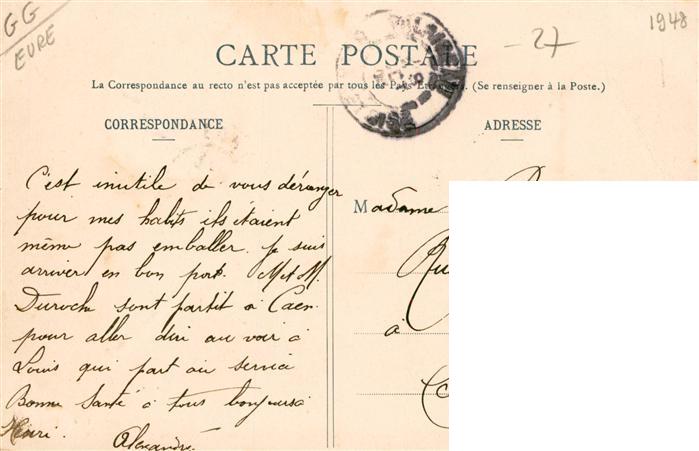 GG
EURE
-27
1948
CARTE POSTALE
La Correspondance au recto n'est pas acceptée par tous les Pays Étrangers. (Se renseigner à la Poste.)
CORRESPONDANCE
C'est inutile de vous déranger
pour mes habits ils étaient
même pas emballer. Je suis
arriver en bon port. M et M.
Duroche sont partit à Caen
pour aller dire au voir à
Louis qui part au service
Bonne Santé à tous bonjours à
Henri.
Alexandre
ADRESSE
Madame
à